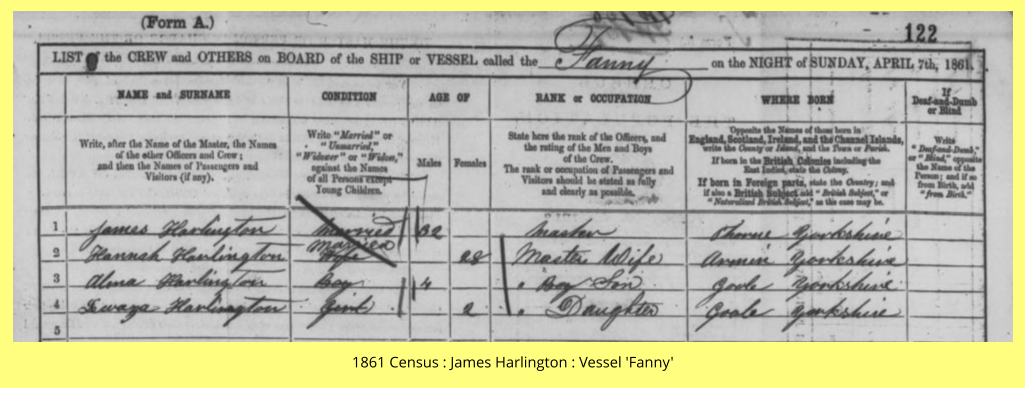 (Form A.)
122
LIST of the CREW and OTHERS on BOARD of the SHIP or VESSEL called the Fanny on the NIGHT of SUNDAY, APRIL 7th, 1861.
NAME and SURNAME CONDITION AGE OF RANK or OCCUPATION WHERE BORN If Deaf-and-Dumb or Blind
Write, after the Name of the Master, the Names
of the other Officers and Crew;
and then the Names of Passengers and
Visitors (if any).
Write "Married" or
"Unmarried,"
"Widower" or "Widow,"
against the Names
of all Persons except
Young Children.
Males Females
State here the rank of the Officers, and
the rating of the Men and Boys
of the Crew.
The rank or occupation of Passengers and
Visitors should be stated as fully
and clearly as possible.
Opposite the Names of those born in
England, Scotland, Ireland, and the Channel Islands,
write the County or Island, and the Town or Parish.
If born in the British Colonies including the
East Indies, state the Colony.
If born in Foreign parts, state the Country; and
if also a British Subject add "British Subject," or
"Naturalized British Subject," as the case may be.
Write
"Deaf-and-Dumb,"
or "Blind," opposite
the Name of the
Person; and if so
from Birth, add
"from Birth."
1 James Harlington Married 32 Master Thorne Yorkshire
2 Hannah Harlington Married Wife 28 Master Wife Armin Yorkshire
3 Alma Harlington Boy 4 " Boy Son Goole Yorkshire
4 Harlington Girl 2 " Daughter Goole Yorkshire
5
1861 Census : James Harlington : Vessel 'Fanny'